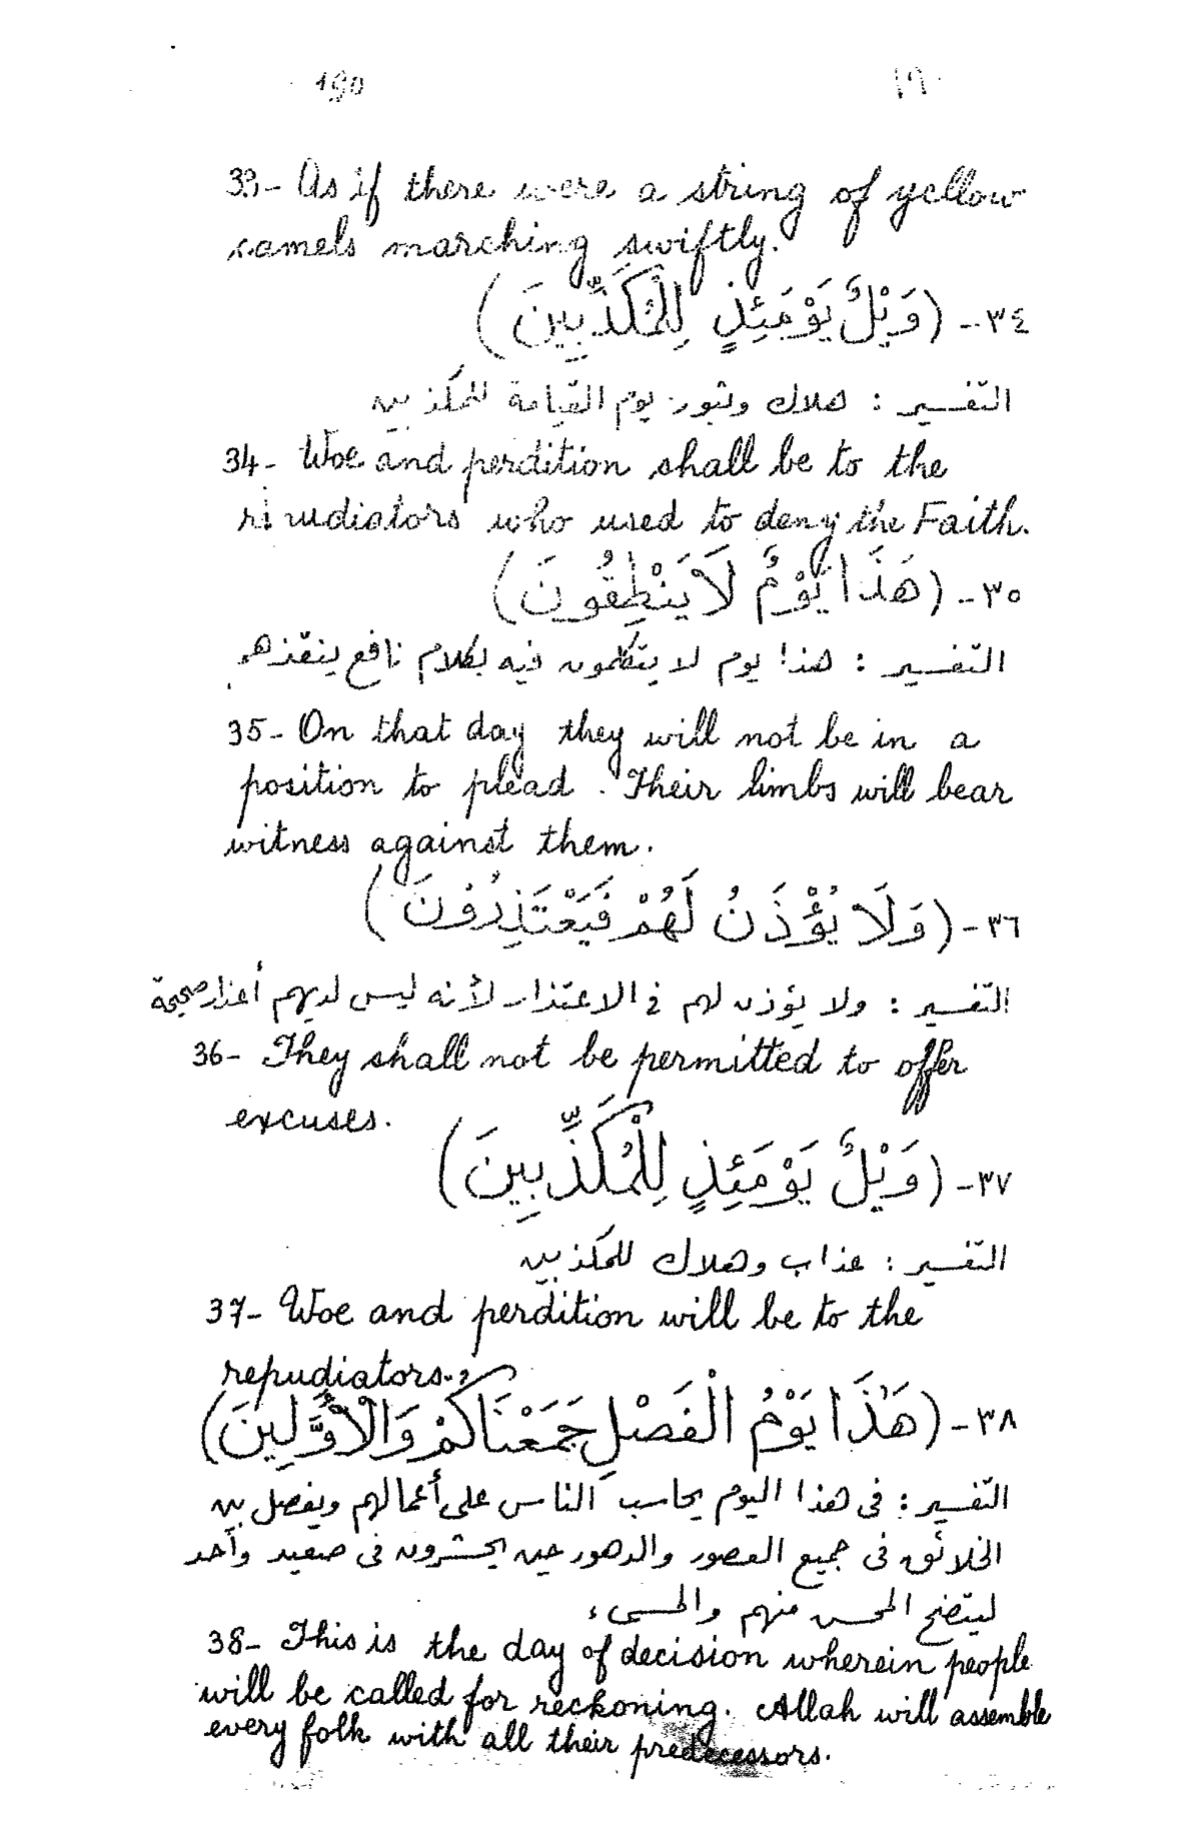 190 ١٩٠
33- As if there were a string of yellow
camels marching swiftly.
٣٤- (وَيْلٌ يَوْمَئِذٍ لِلْمُكَذِّبِينَ)
التفسير : هلاك وثبور يوم القيامة للمكذبين
34- Woe and perdition shall be to the
repudiators who used to deny the Faith.
٣٥- (هَذَا يَوْمُ لَا يَنْطِقُونَ)
التفسير : هذا يوم لا يتكلمون فيه بكلام نافع ينقذهم
35- On that day they will not be in a
position to plead. Their limbs will bear
witness against them.
٣٦- (وَلَا يُؤْذَنُ لَهُمْ فَيَعْتَذِرُونَ)
التفسير : ولا يؤذن لهم في الاعتذار لأنه ليس لديهم أعذار صحيحة
36- They shall not be permitted to offer
excuses.
٣٧- (وَيْلٌ يَوْمَئِذٍ لِلْمُكَذِّبِينَ)
التفسير : عذاب وهلاك للمكذبين
37- Woe and perdition will be to the
repudiators.
٣٨- (هَٰذَا يَوْمُ الْفَصْلِ جَمَعْنَاكُمْ وَالْأَوَّلِينَ)
التفسير : فى هذا اليوم يحاسب الناس على أعمالهم ويفصل بين
الخلائق فى جميع العصور والدهور حين يحشرون فى صعيد واحد
ليتضح المحسن منهم والمسىء
38- This is the day of decision wherein people
will be called for reckoning. Allah will assemble
every folk with all their predecessors.